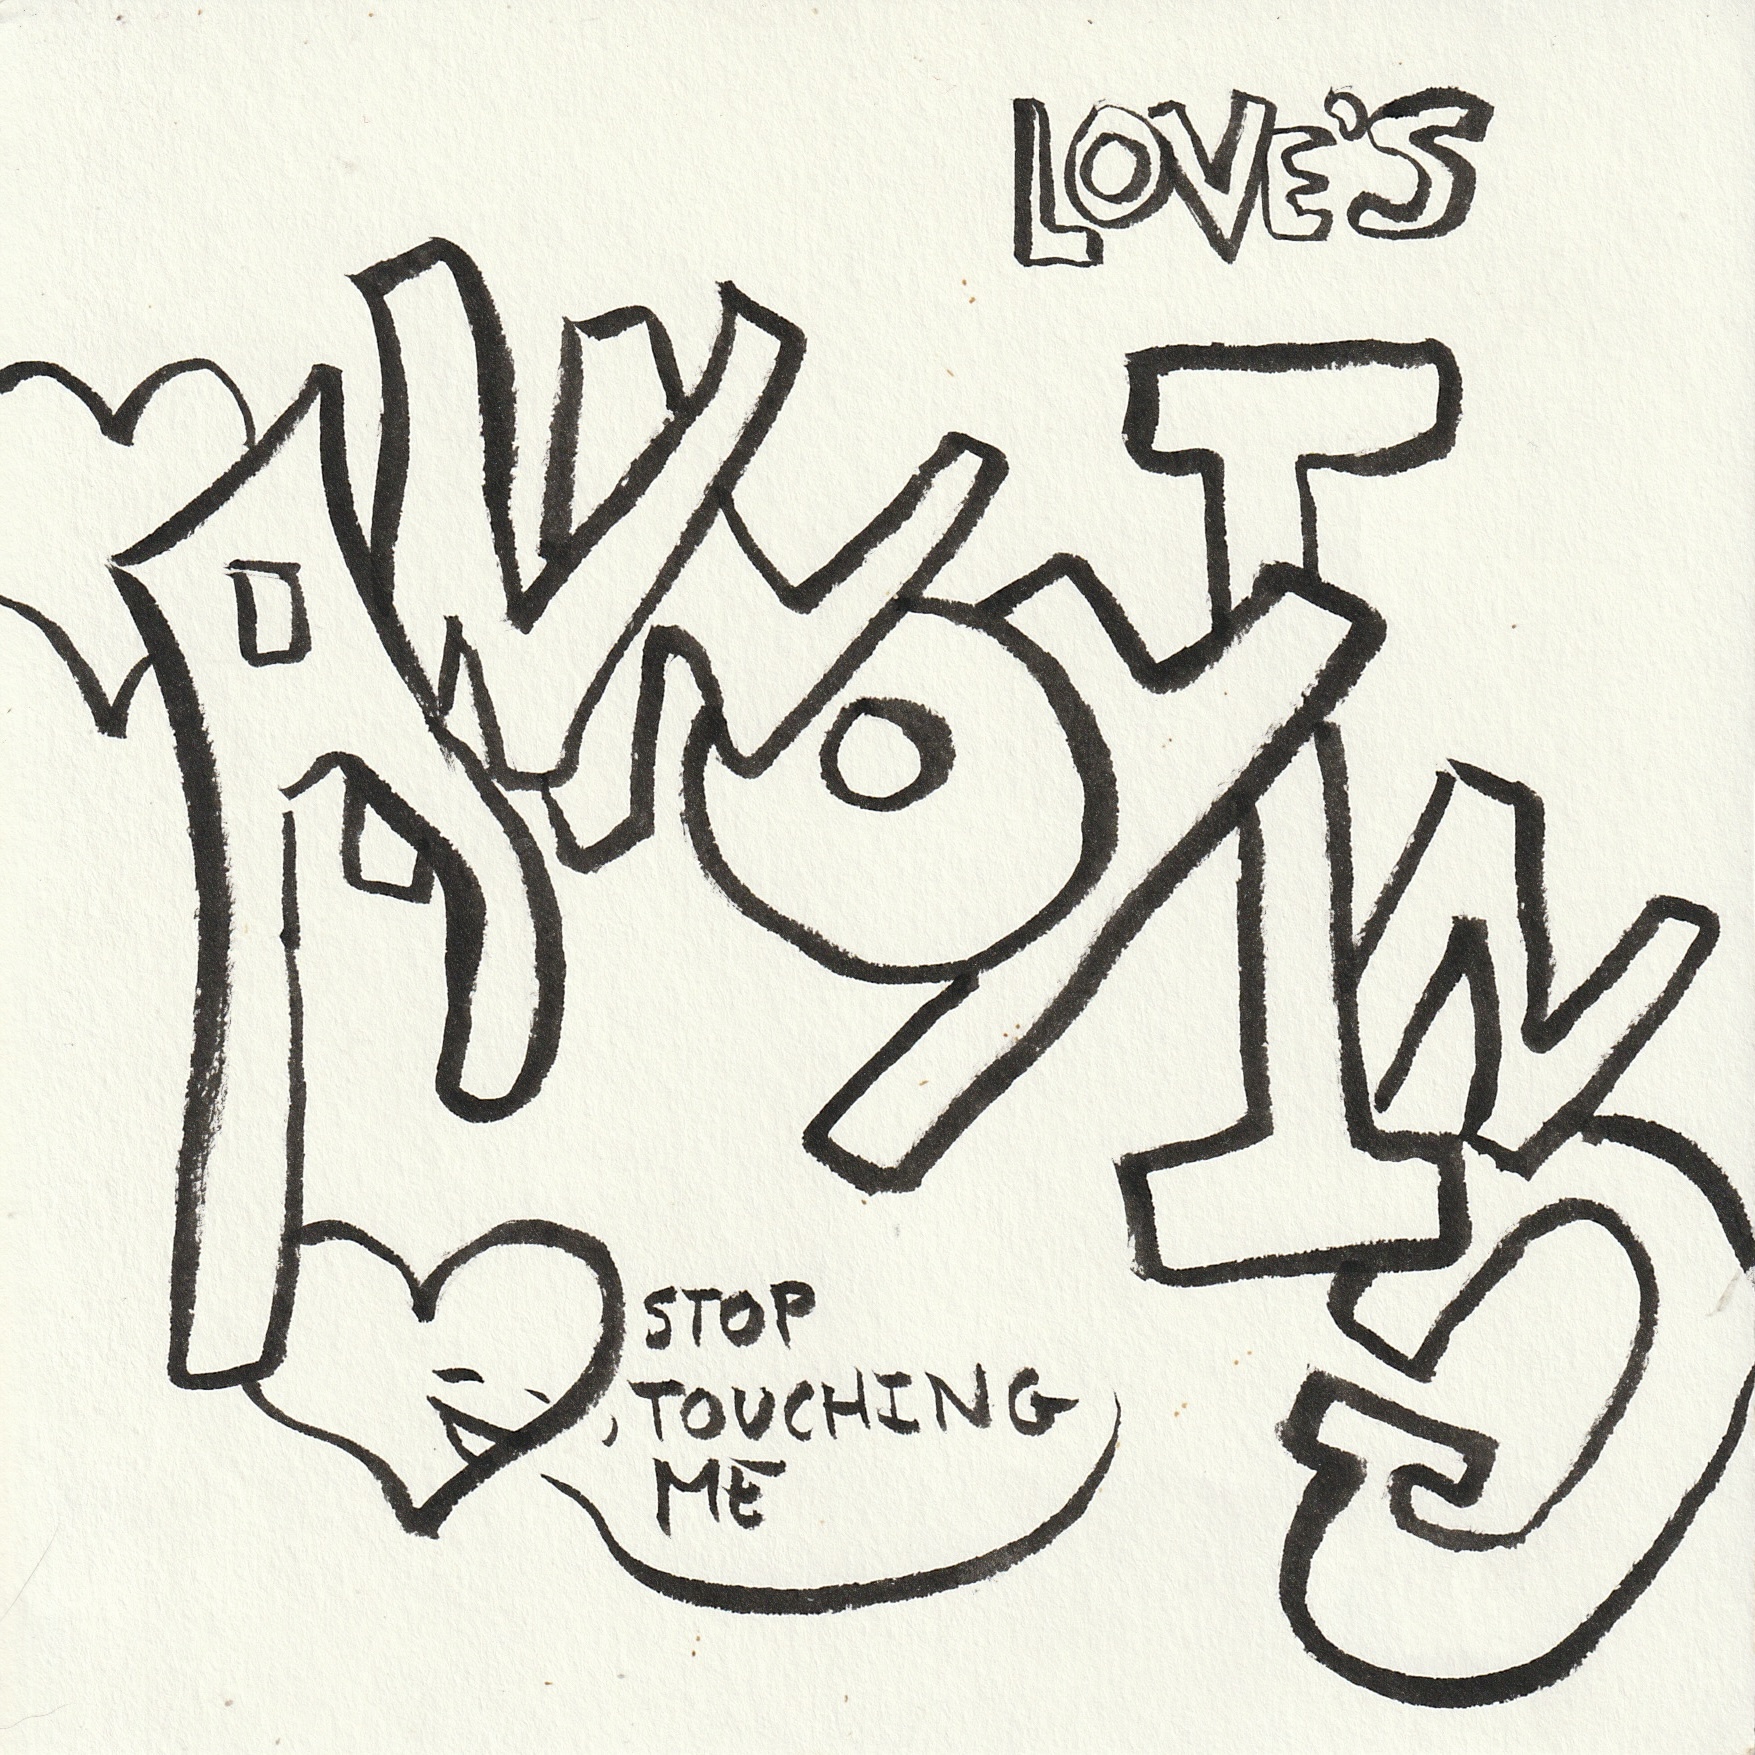 LOVE'S
ANNOYING
STOP
TOUCHING
ME